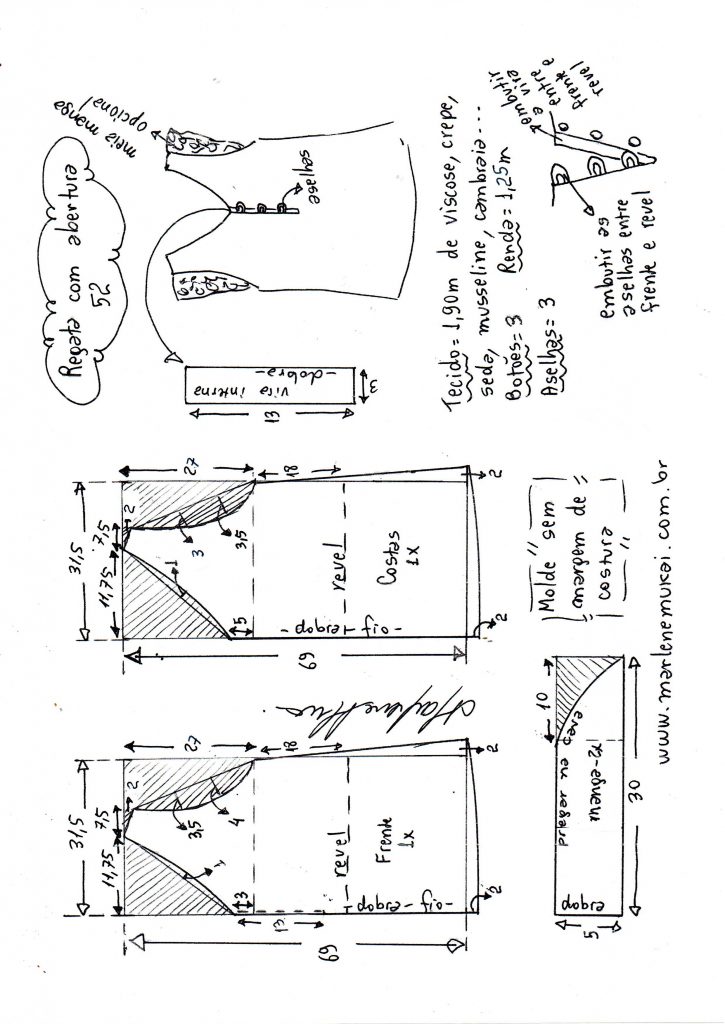 Regata com abertura
52
meia manga
opcional
aselhas
vira interna
-dobra-
13
3
Tecido = 1,90m de viscose, crepe,
seda, musseline, cambraia...
Botões = 3 Renda = 1,25m
Aselhas = 3
embutir
a vira
entre
frente e
revel
embutir as
aselhas entre
frente e revel
31,5
11,75
7,5
2
27
18
1
3,5
4
3
13
69
revel
Frente
1x
-dobra-fio-
2
2
31,5
11,75
7,5
2
27
18
1
3
3,5
5
69
revel
Costas
1x
-dobra-fio-
2
2
Molde "sem
margem de"
costura"
10
pregar na cava
manga-2x
dobra
5
30
www.marlenemukai.com.br